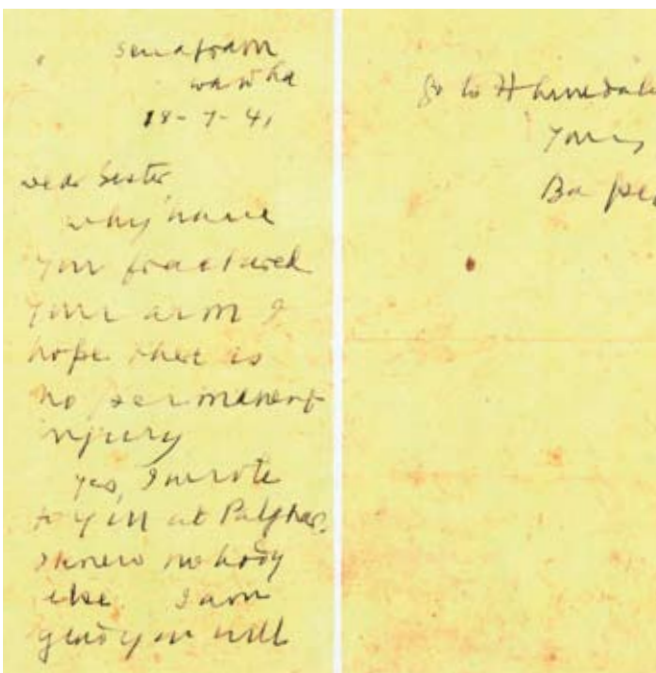 Sevagram
Wardha
18-7-41
Dear Sister
why have
you fractured
your arm I
hope there is
no permanent
injury
yes, I wrote
to you at Palghar.
I knew nobody
else I am
glad you will
go to
Yours
Bapu